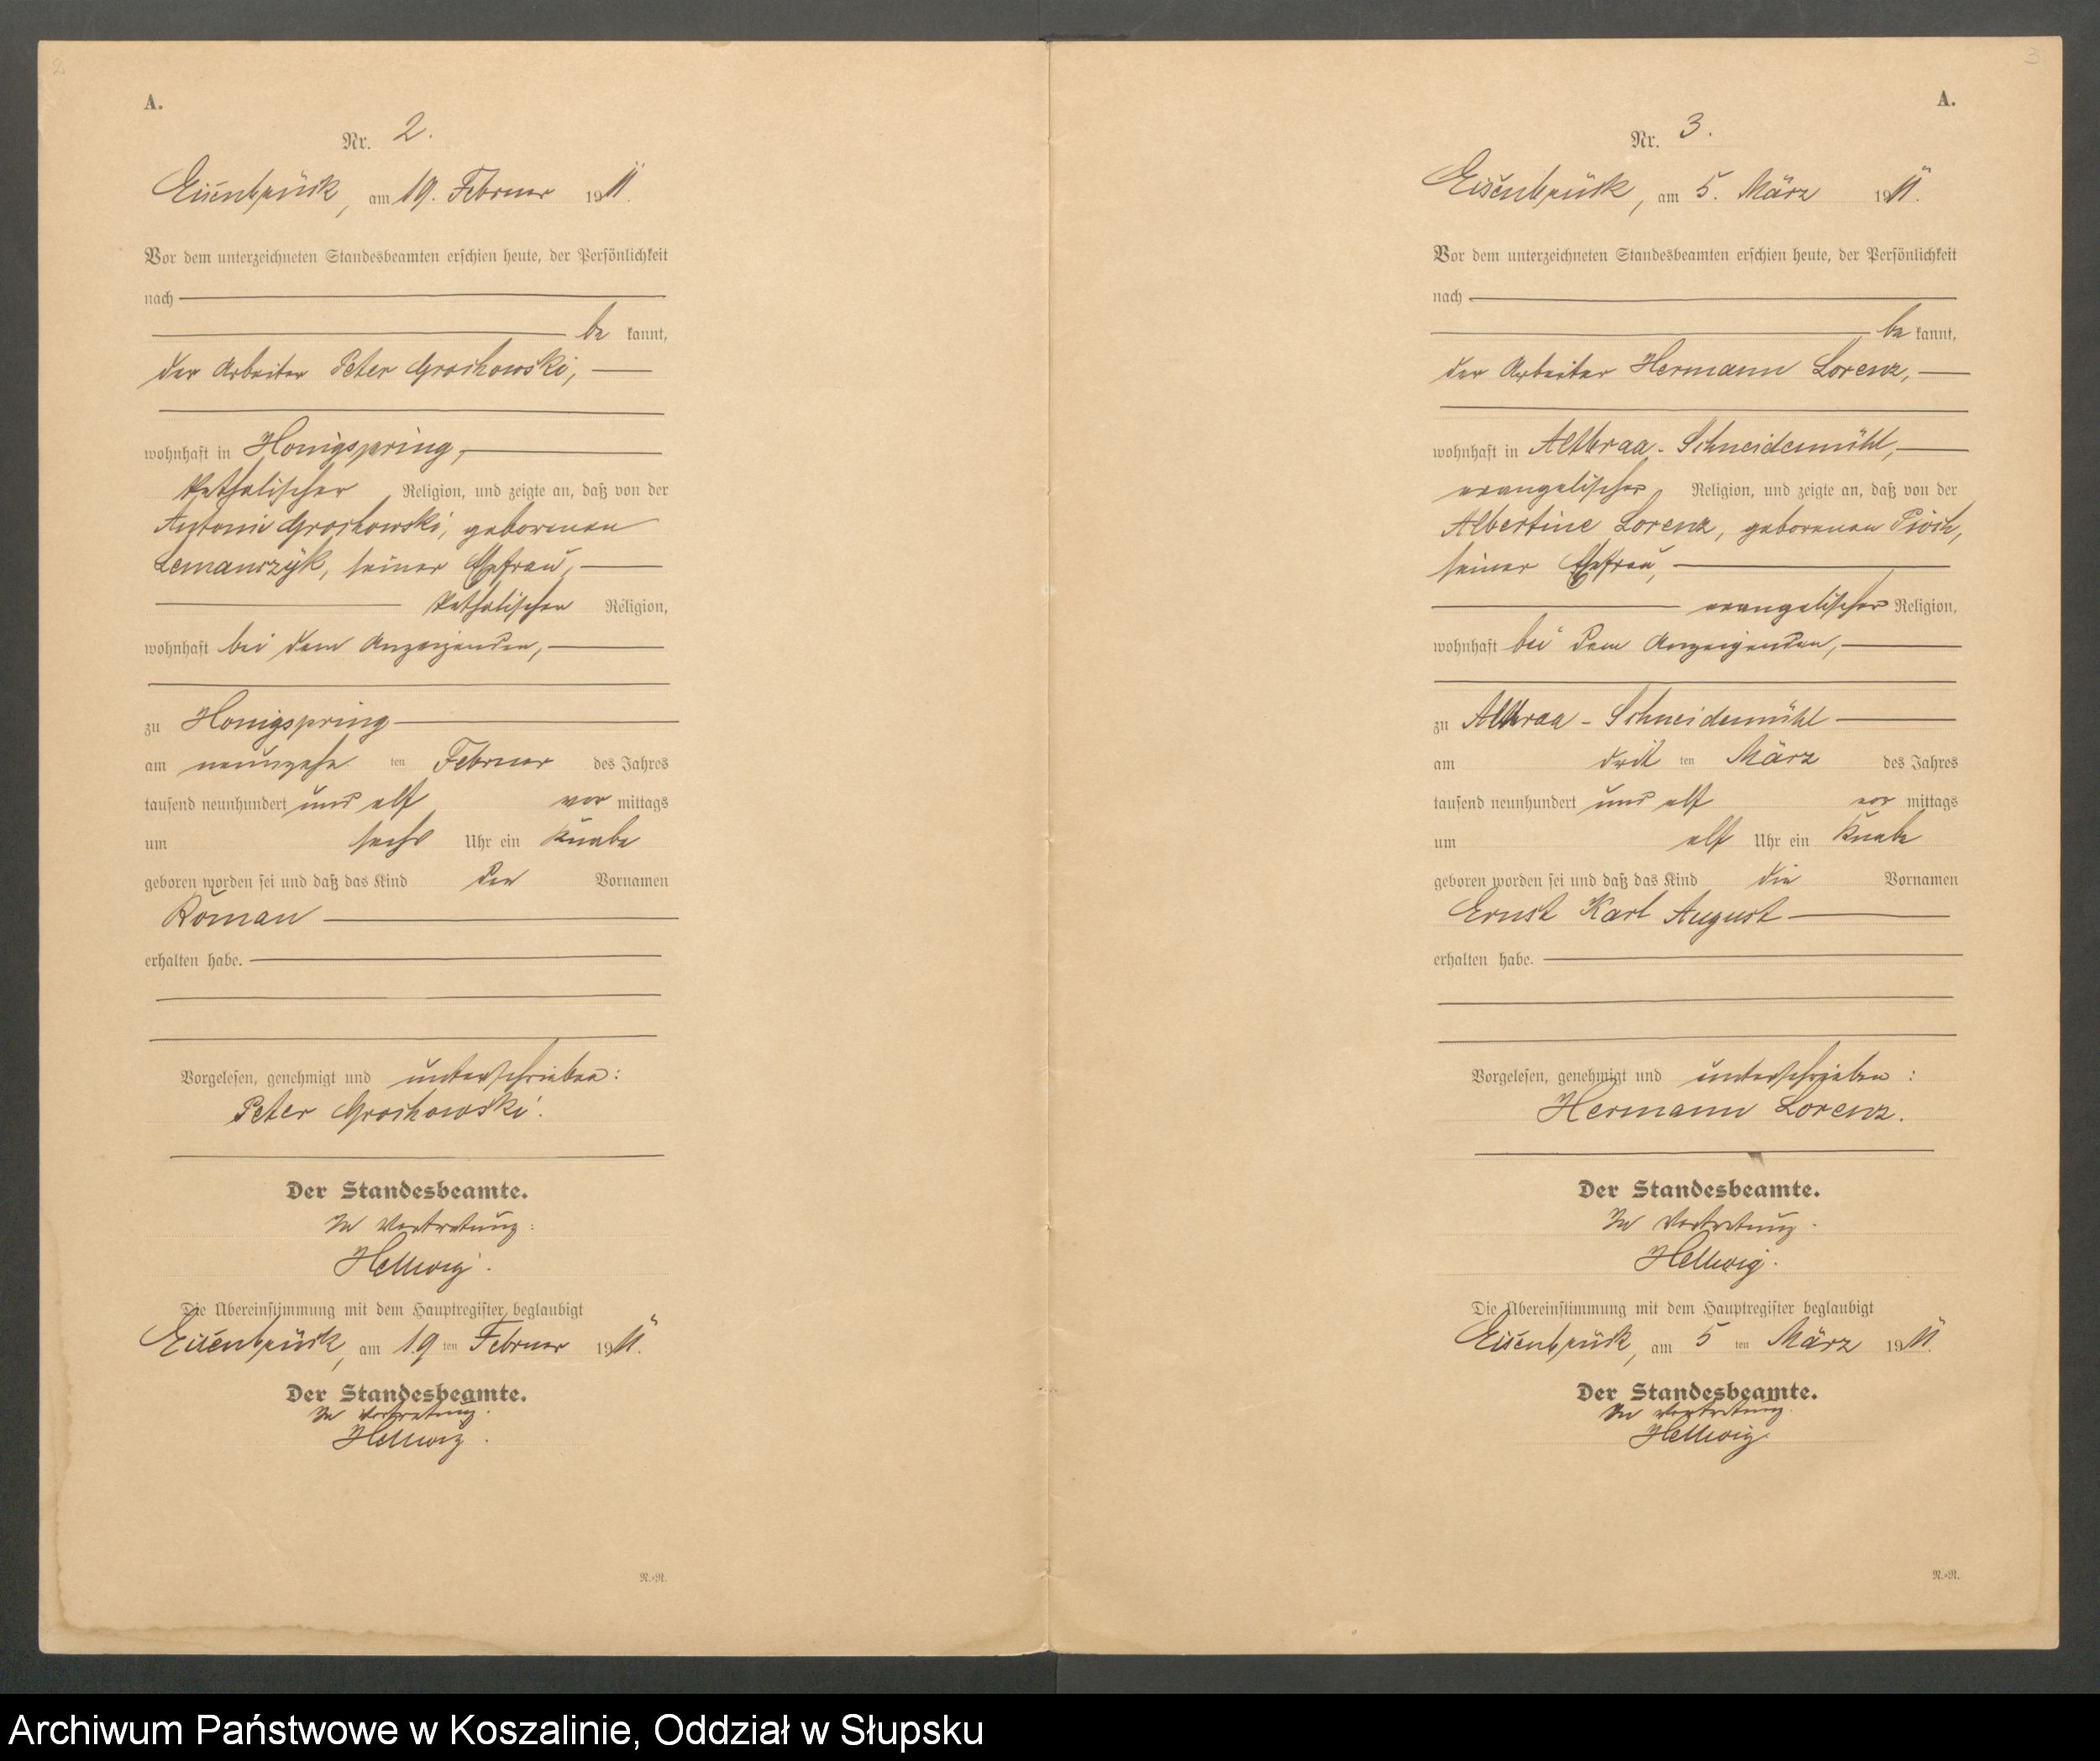 2
A.
Nr. 2.
Eisenbrück, am 19. Februar 1911.
Vor dem unterzeichneten Standesbeamten erschien heute, der Persönlichkeit
nach
be kannt,
der Arbeiter Peter Grochowski,
wohnhaft in Honigspring,
katholischer Religion, und zeigte an, daß von der
Antonie Grochowski, geborenen
Lemanczyk, seiner Ehefrau,
katholischer Religion,
wohnhaft bei dem Anzeigenden,
zu Honigspring
am neunzehn ten Februar des Jahres
tausend neunhundert und elf vor mittags
um sechs Uhr ein Knabe
geboren worden sei und daß das Kind den Vornamen
Roman
erhalten habe.
Vorgelesen, genehmigt und unterschrieben:
Peter Grochowski.
Der Standesbeamte.
In Vertretung:
Hellwig.
Die Übereinstimmung mit dem Hauptregister beglaubigt
Eisenbrück, am 19 ten Februar 1911.
Der Standesbeamte.
In Vertretung.
Hellwig.
R.-R.
3
A.
Nr. 3.
Eisenbrück, am 5. März 1911.
Vor dem unterzeichneten Standesbeamten erschien heute, der Persönlichkeit
nach
be kannt,
der Arbeiter Hermann Lorenz,
wohnhaft in Altbraa-Schneidemühl,
evangelischer Religion, und zeigte an, daß von der
Albertine Lorenz, geborenen
seiner Ehefrau,
evangelischer Religion,
wohnhaft bei dem Anzeigenden,
zu Altbraa-Schneidemühl
am drit ten März des Jahres
tausend neunhundert und elf vor mittags
um elf Uhr ein Knabe
geboren worden sei und daß das Kind die Vornamen
Ernst Karl August
erhalten habe.
Vorgelesen, genehmigt und unterschrieben:
Hermann Lorenz.
Der Standesbeamte.
In Vertretung.
Hellwig.
Die Übereinstimmung mit dem Hauptregister beglaubigt
Eisenbrück, am 5 ten März 1911.
Der Standesbeamte.
In Vertretung.
Hellwig.
R.-R.
Archiwum Państwowe w Koszalinie, Oddział w Słupsku